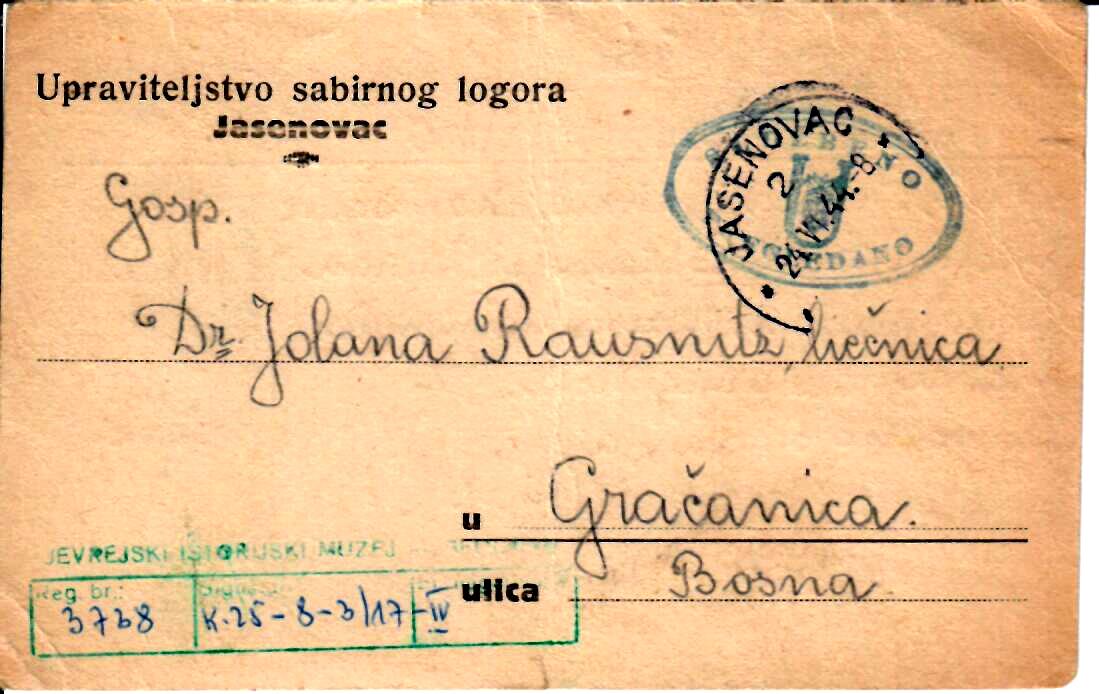 Upraviteljstvo sabirnog logora
Jasenovac
JASENOVAC
2
24.VI.44.-8
Gosp.
Dr. Jolana Rausnitz, liečnica
u Gračanica.
ulica Bosna.
JEVREJSKI ISTORIJSKI MUZEJ
Reg. br.:
3738 K.25-8-3/17-IV